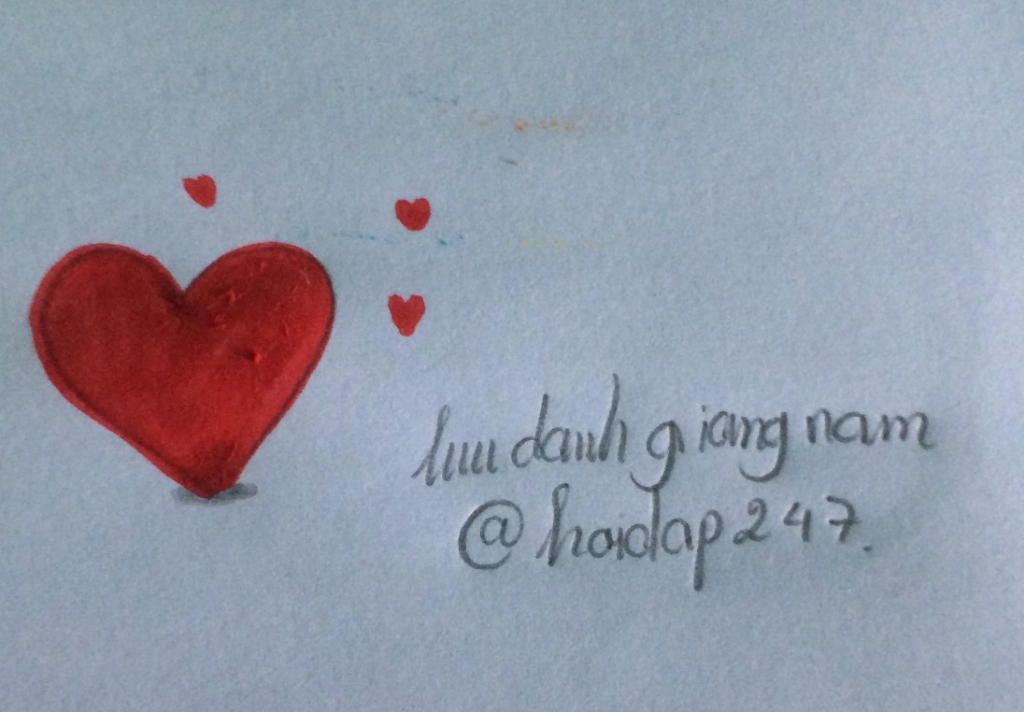 luu danh giang nam
@hoidap247.